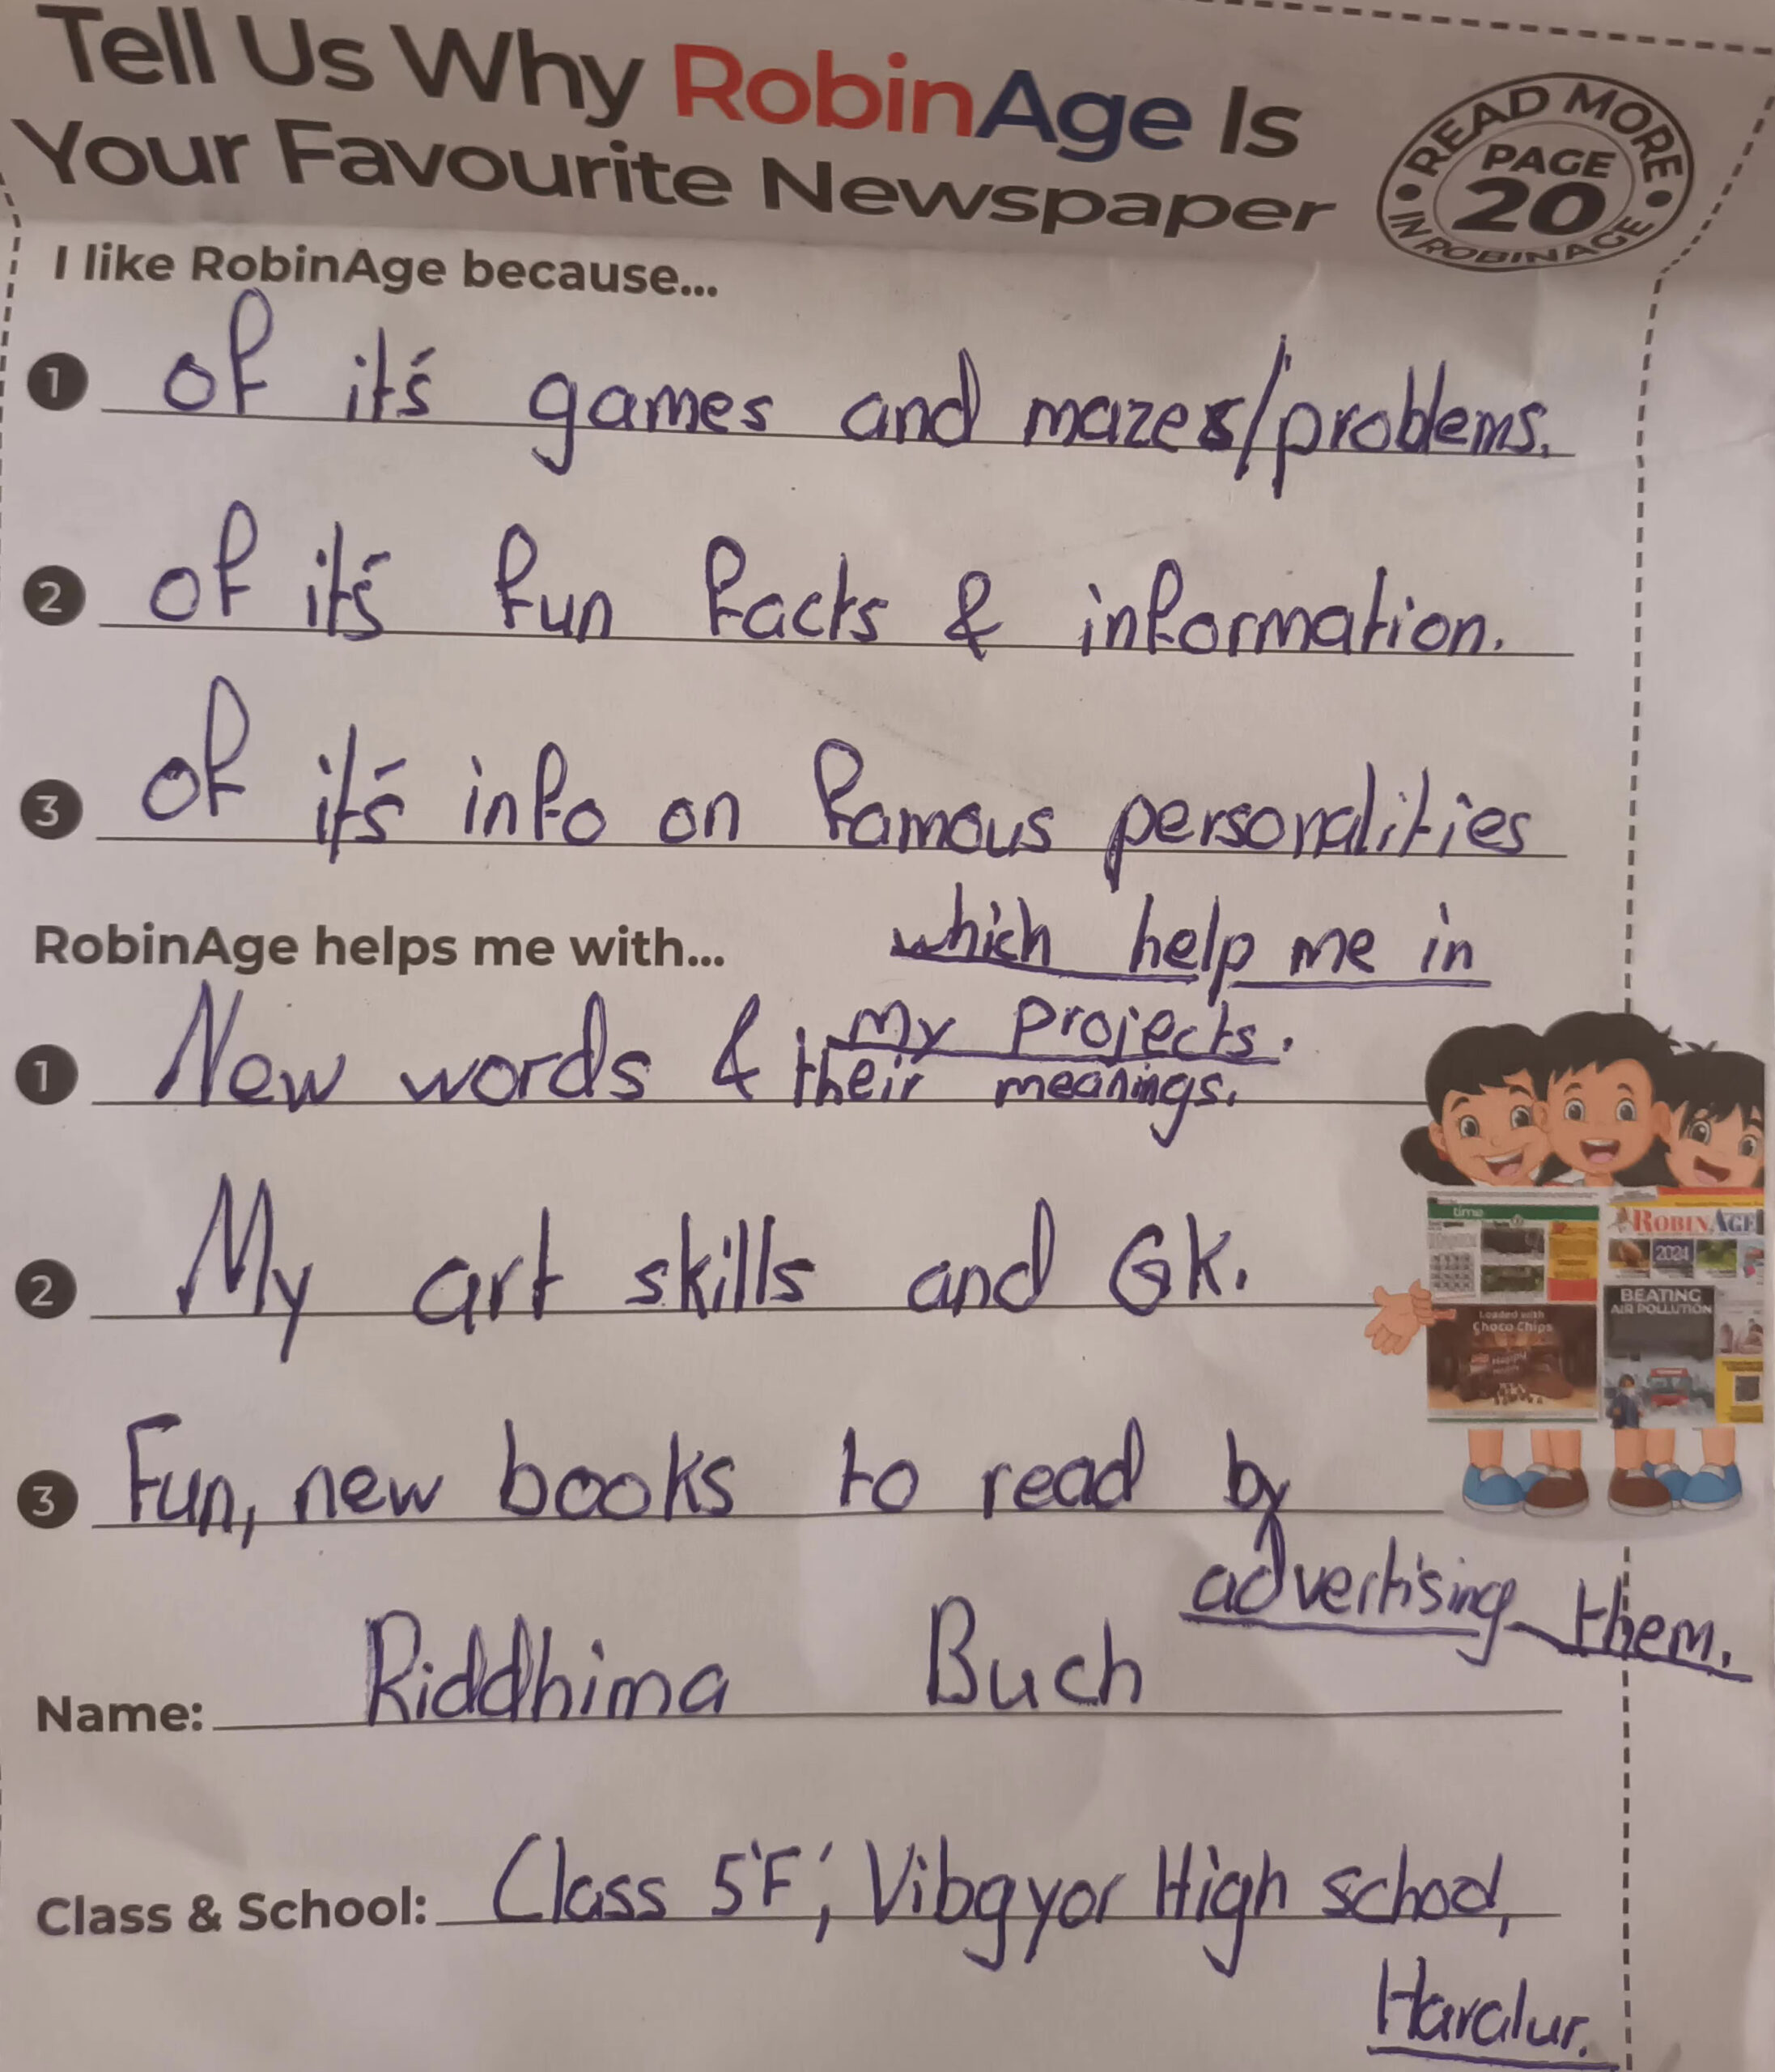 Tell Us Why RobinAge Is
Your Favourite Newspaper
READ MORE
PAGE
20
IN ROBINAGE
I like RobinAge because...
1 of it's games and mazes/problems.
2 of it's fun facts & information.
3 of it's info on famous personalities
which help me in
my projects.
RobinAge helps me with...
1 New words & their meanings.
2 My art skills and GK.
3 Fun, new books to read by
advertising them.
time
ROBINAGE
2024
BEATING
AIR POLLUTION
Loaded with
Choco Chips
Name: Riddhima Buch
Class & School: Class 5'F', Vibgyor High school,
Haralur.